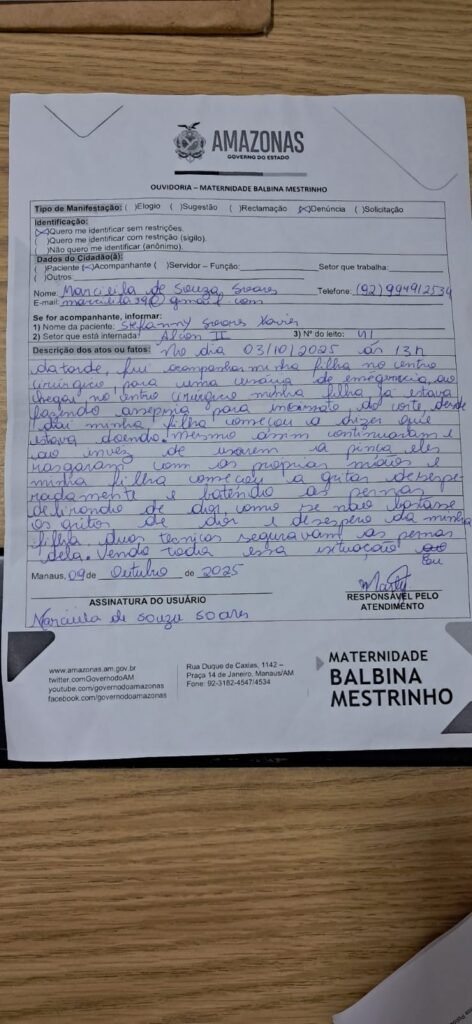 AMAZONAS
GOVERNO DO ESTADO
OUVIDORIA – MATERNIDADE BALBINA MESTRINHO
Tipo de Manifestação: ( )Elogio ( )Sugestão ( )Reclamação (X)Denúncia ( )Solicitação
Identificação:
(X)Quero me identificar sem restrições.
( )Quero me identificar com restrição (sigilo).
( )Não quero me identificar (anônimo).
Dados do Cidadão(ã):
( )Paciente (X)Acompanhante ( )Servidor – Função: Setor que trabalha:
( )Outros:
Nome: Marcicila de Souza Soares Telefone: (92) 994912534
E-mail: marcicila39@gmail.com
Se for acompanhante, informar:
1) Nome da paciente: Stefanny Soares Xavier
2) Setor que está internada? Alcon II 3) Nº do leito: 41
Descrição dos atos ou fatos: No dia 03/10/2025 ás 13h
da tarde, fui acompanhar minha filha no centro
cirúrgico, para uma cesária de emergencia, ao
chegar no centro cirurgico minha filha já estava
fazendo assepsia para do corte, desde
daí minha filha começou a dizer que
estava doendo. mesmo assim continuaram e
ao invez de usarem a pinça eles
rasgaram com as proprias mãos e
minha filha começou a gritar desespe-
radamente e batendo as pernas
delirando de dor, como se não bastasse
os gritos de dor e desespero da minha
filha, duas tecnicas seguravam as pernas
dela. Vendo toda essa situação
Eu
Manaus, 09 de Outubro de 2025
ASSINATURA DO USUÁRIO
RESPONSÁVEL PELO
ATENDIMENTO
Marcicila de Souza Soares
www.amazonas.am.gov.br
twitter.com/GovernodoAM
youtube.com/governodoamazonas
facebook.com/governodoamazonas
Rua Duque de Caxias, 1142 –
Praça 14 de Janeiro, Manaus/AM
Fone: 92-3182-4547/4534
MATERNIDADE
BALBINA
MESTRINHO